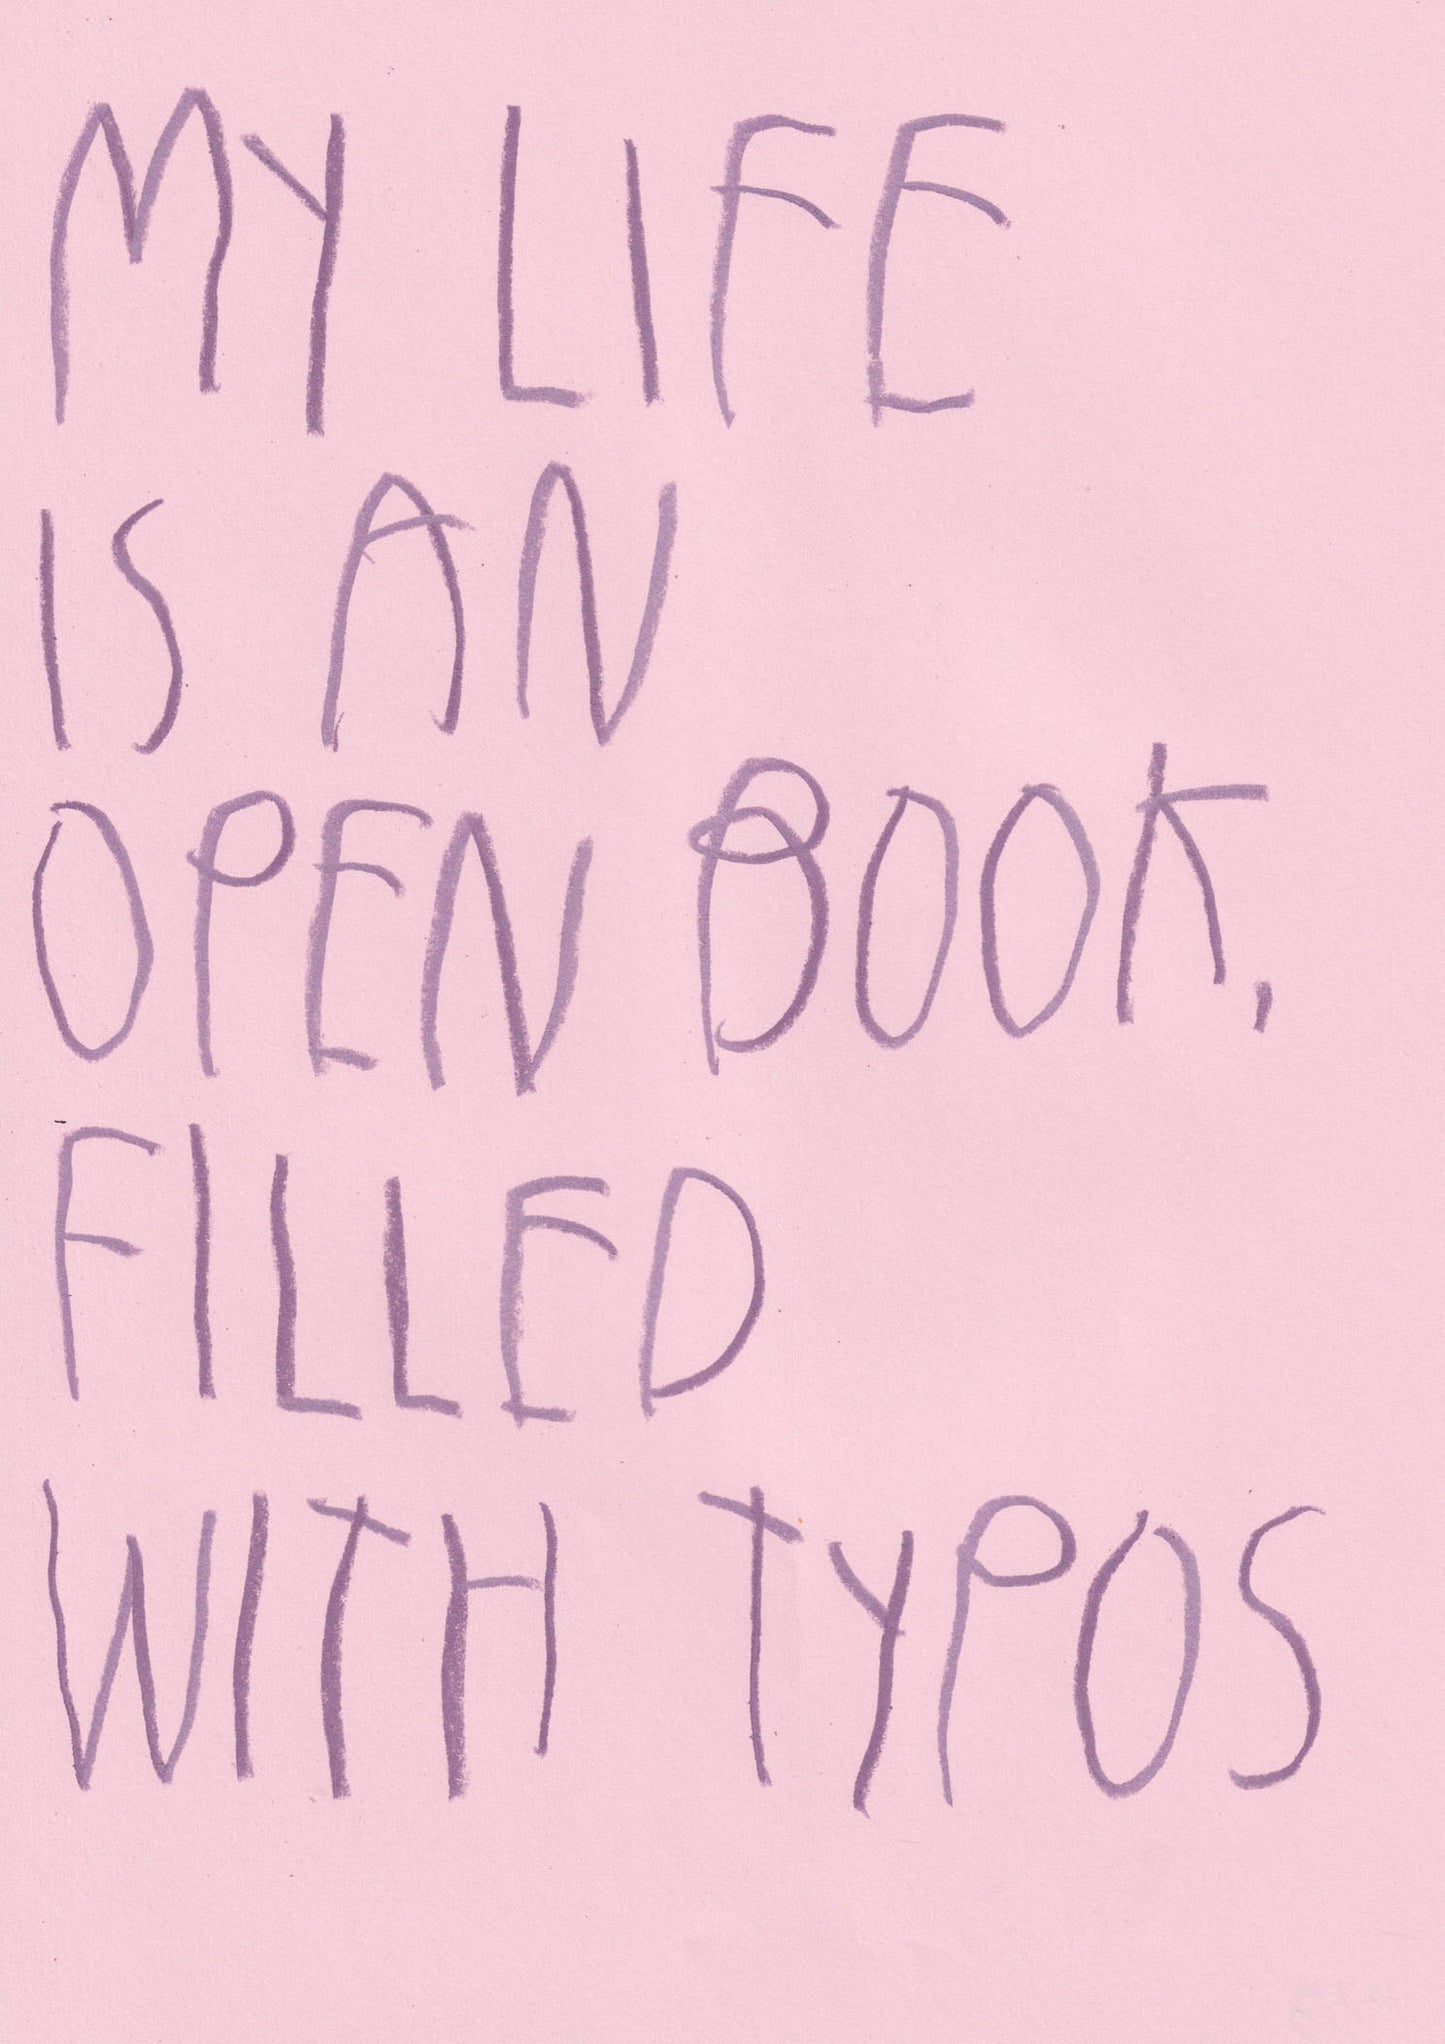 MY LIFE
IS AN
OPEN BOOK,
FILLED
WITH TYPOS